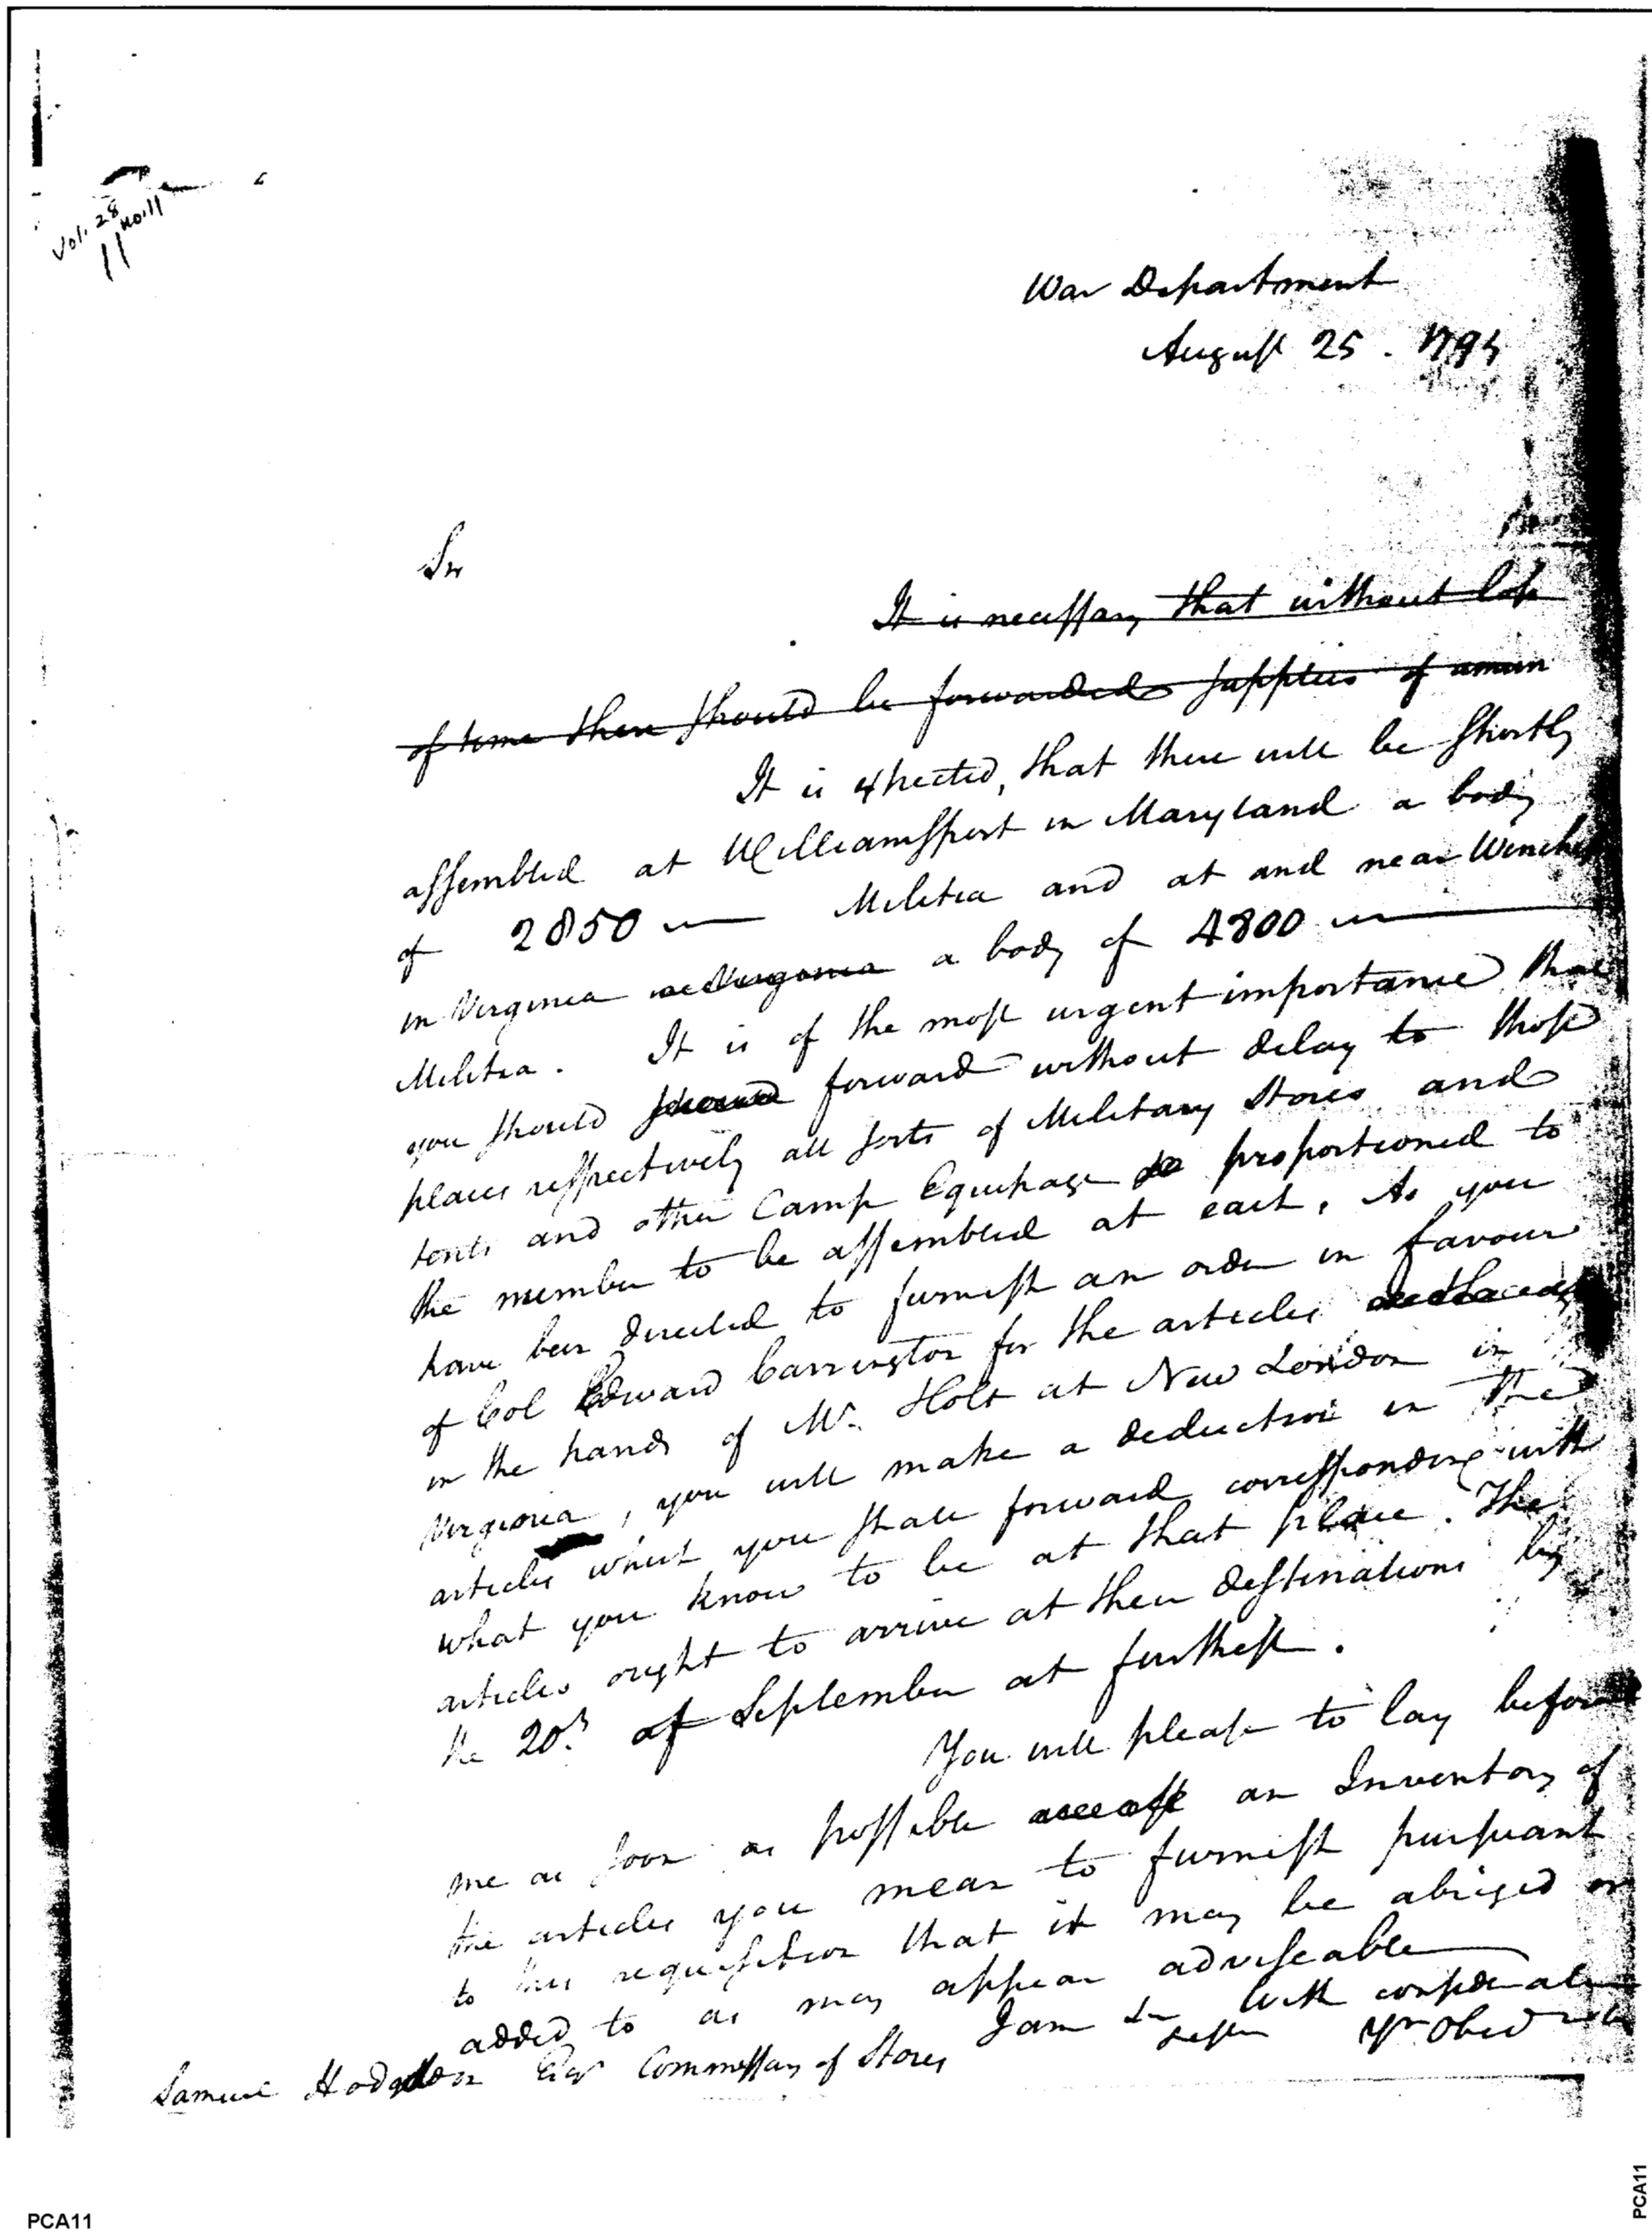 Vol. 28 No. 11
11
War Department
August 25. 1794
Sir
It is necessary that without loss
of time there should be forwarded supplies of ammun
It is expected, that there will be shortly
assembled at Williamsport in Maryland a body
of 2850 Militia and at and near Winches
in Virginia a body of 4800
Militia. It is of the most urgent importance that
you should forward without delay to those
places respectively all sorts of Military Stores and
tents and other Camp Equipage proportioned to
the number to be assembled at each. As you
have been directed to furnish an order in favour
of Col Edward Carrington for the articles
in the hands of Mr. Holt at New London in
Virginia, you will make a deduction in the
articles which you shall forward corresponding with
what you know to be at that place. The
articles ought to arrive at their destinations by
the 20th of September at furthest.
You will please to lay before
me as soon as possible an Inventory of
the articles you mean to furnish pursuant
to this requisition that it may be abriged or
added to as may appear adviseable
I am Sir With consideration
Samuel Hodgdon Esqr Commissary of Stores yr Obed
PCA11
PCA11